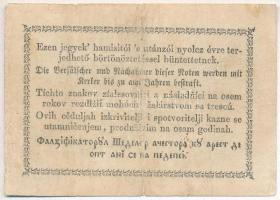 Ezen jegyek' hamisitói 's utánzói nyolcz évre ter-
jedhető börtönöztetéssel büntettetnek.
Die Verfälscher und Nachahmer dieser Noten werden mit
Kerker bis zu acht Jahren bestraft.
Tichto znakov zfalšovníci a následníci na osem
rokov rozdiaži mohúcim žalárstvom sa trescú.
Ovih oduljah izkrivitelji i spotvoritelji kazne se
utamničenjem, produžim na osam godinah.
Фалзіфікаторȣл
ачестора кȣ арест де
опт ані се ва педепсі.